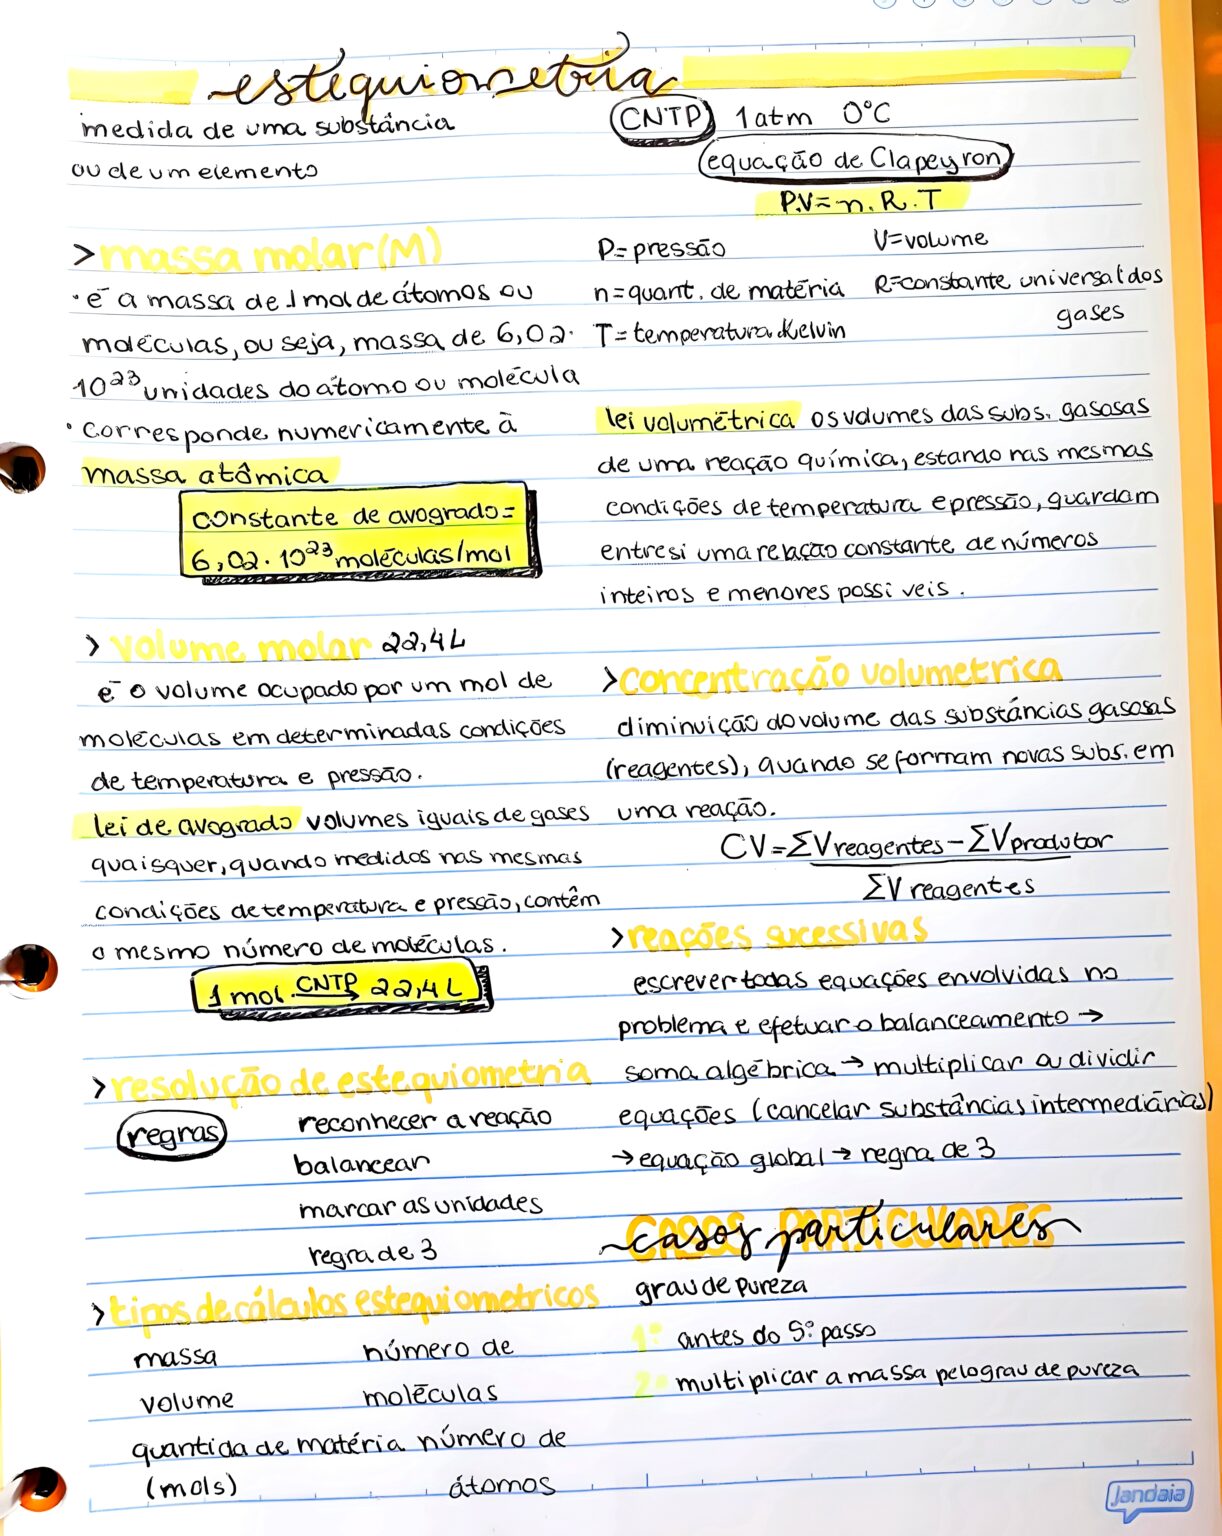 estequiometria
medida de uma substância
ou de um elemento
> massa molar (M)
• é a massa de 1 mol de átomos ou
moléculas, ou seja, massa de 6,02 ·
10²³ unidades do átomo ou molécula
• corresponde numericamente à
massa atômica
constante de avogrado =
6,02 · 10²³ moléculas/mol
> volume molar 22,4 L
é o volume ocupado por um mol de
moléculas em determinadas condições
de temperatura e pressão.
lei de avogrado volumes iguais de gases
quaisquer, quando medidos nas mesmas
condições de temperatura e pressão, contêm
o mesmo número de moléculas.
1 mol CNTP → 22,4 L
> resolução de estequiometria
regras
reconhecer a reação
balancear
marcar as unidades
regra de 3
> tipos de cálculos estequiometricos
massa número de
volume moléculas
quantidade matéria número de
(mols) átomos
CNTP 1 atm 0°C
equação de Clapeyron
P.V = n.R.T
P = pressão V = volume
n = quant. de matéria R = constante universal dos
T = temperatura Kelvin gases
lei volumétrica os volumes das subs. gasosas
de uma reação química, estando nas mesmas
condições de temperatura e pressão, guardam
entre si uma relação constante de números
inteiros e menores possiveis.
> concentração volumetrica
diminuição do volume das substâncias gasosas
(reagentes), quando se formam novas subs. em
uma reação.
CV = ΣV reagentes - ΣV produtor
ΣV reagentes
> reações sucessivas
escrever todas equações envolvidas no
problema e efetuar o balanceamento →
soma algébrica → multiplicar ou dividir
equações (cancelar substâncias intermediárias)
→ equação global → regra de 3
casos particulares
CASOS PARTICULARES
grau de pureza
1º antes do 5º passo
2º multiplicar a massa pelo grau de pureza
Jandaia